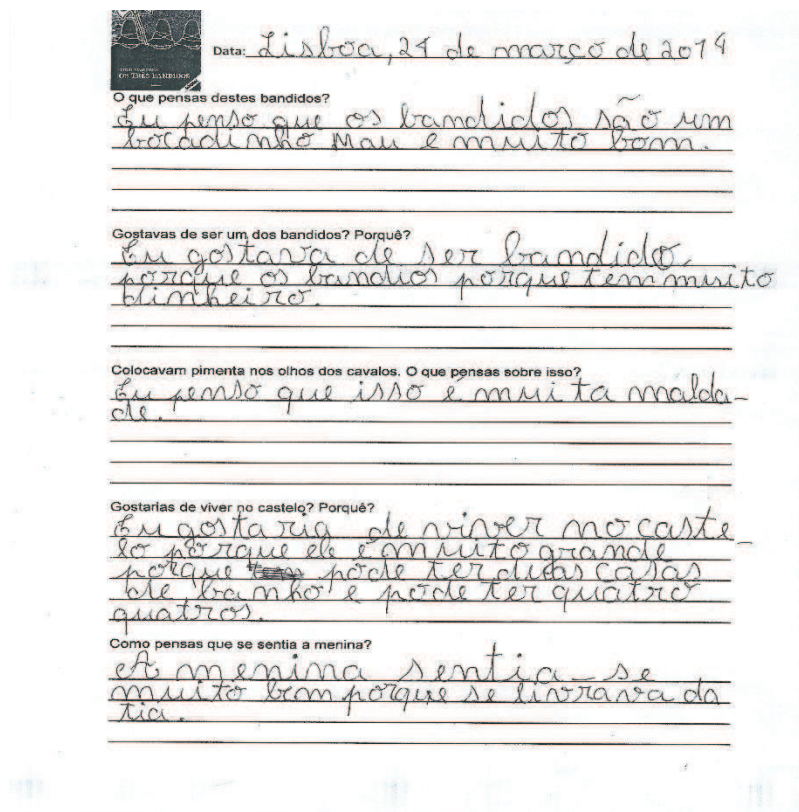 OS TRÊS BANDIDOS
Data: Lisboa, 24 de março de 2014
O que pensas destes bandidos?
Eu penso que os bandidos são um
bocadinho Mau e muito bom.
Gostavas de ser um dos bandidos? Porquê?
Eu gostava de ser bandido,
porque os bandios porque têm muito
dinheiro.
Colocavam pimenta nos olhos dos cavalos. O que pensas sobre isso?
Eu penso que isso é muita malda-
de.
Gostarias de viver no castelo? Porquê?
Eu gostaria de viver no caste-
lo porque ele é muito grande
porque pode ter duas casas
de banho e pode ter quatro
quatros.
Como pensas que se sentia a menina?
A menina sentia-se
muito bem porque se livrava da
tia.